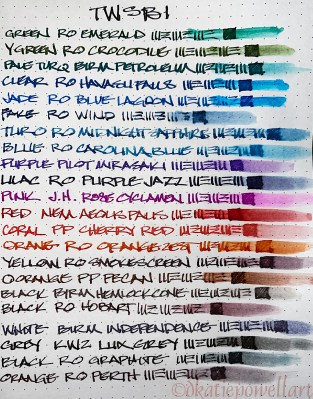 TWSBI
GREEN RO EMERALD
Y GREEN RO CROCODILE
PALE TURQ BIRM PETROLEUM
CLEAR RO HAVASU FALLS
JADE RO BLUE LAGOON
RO WIND
TURQ RO MIDNIGHT SAPPHIRE
BLUE RO CAROLINA BLUE
PURPLE PILOT MURASAKI
LILAC RO PURPLE JAZZ
PINK J.H. ROSE CYCLAMEN
RED NEM AEOLIS PALUS
CORAL PP CHERRY RED
ORANGE RO ORANGE ZEST
YELLOW RO SMOKESCREEN
O ORANGE PP PECAN
BLACK BIRM HEMLOCK CONE
BLACK RO HOBART
WHITE BIRM INDEPENDENCE
GREY KWZ LUX GREY
BLACK RO GRAPHITE
ORANGE RO PERTH
©dkatiepowellart